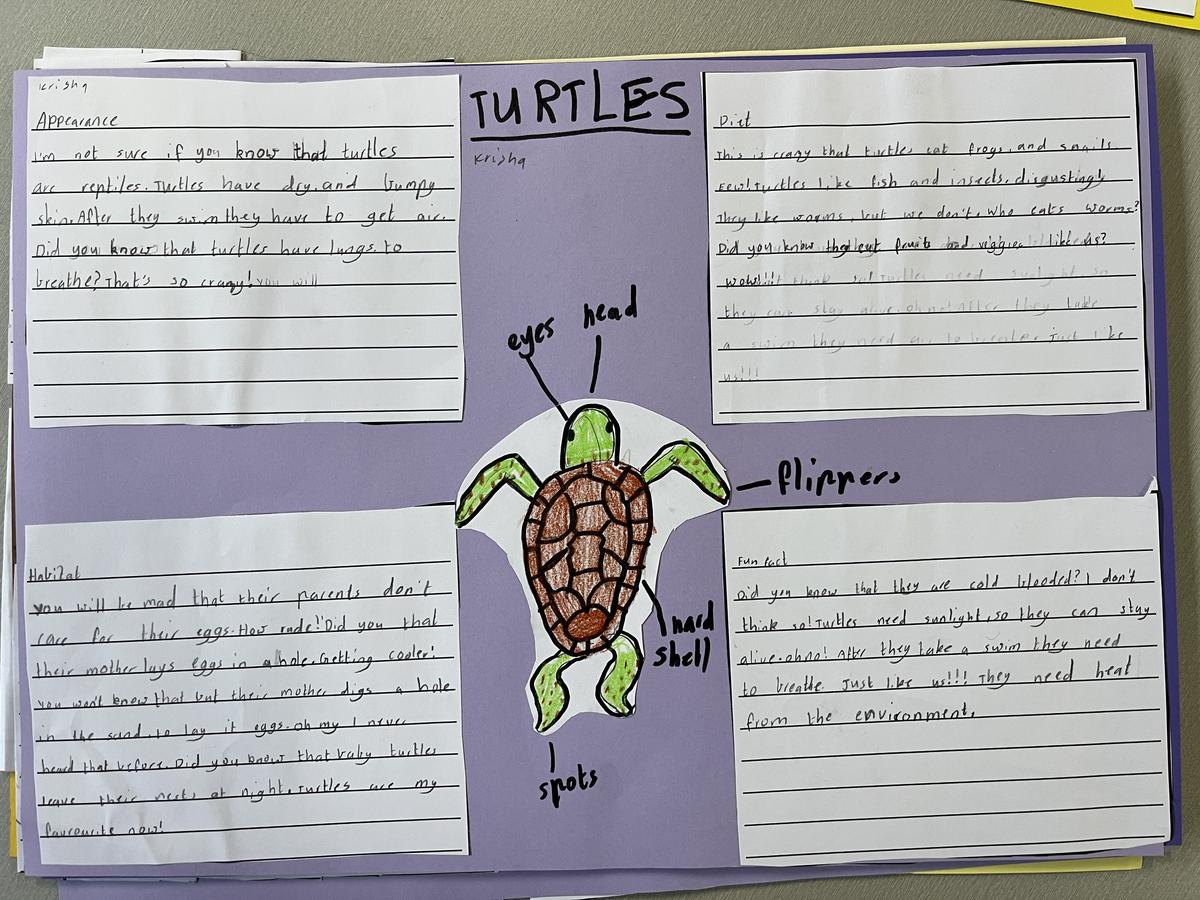 Krisha
Appearance
I'm not sure if you know that turtles
are reptiles. Turtles have dry, and bumpy
skin. After they swim they have to get air.
Did you know that turtles have lungs, to
breathe? That's so crazy! you will
TURTLES
Krisha
Diet
This is crazy that turtles eat frogs, and snails
Eew! Turtles like fish and insects, disgusting!
They like worms, but we don't, Who eats worms?
Did you know they eat fruits and veggies like us?
wow!!! think so! Turtles need sunlight, so
they can stay alive. oh no! After they take
a swim they need air to breathe. Just like
us!!!
eyes
head
flippers
hard
shell
spots
Habitat
you will be mad that their parents don't
care for their eggs. How rude! Did you that
their mother lays eggs in a hole. Getting cooler!
you won't know that but their mother digs a hole
in the sand, to lay it eggs. oh my I never
heard that before. Did you know that baby turtles
leave their nests at night. Turtles are my
favourite now!
Fun fact
Did you know that they are cold blooded? I don't
think so! Turtles need sunlight, so they can stay
alive. oh no! After they take a swim they need
to breathe. Just like us!!! They need heat
from the environment.